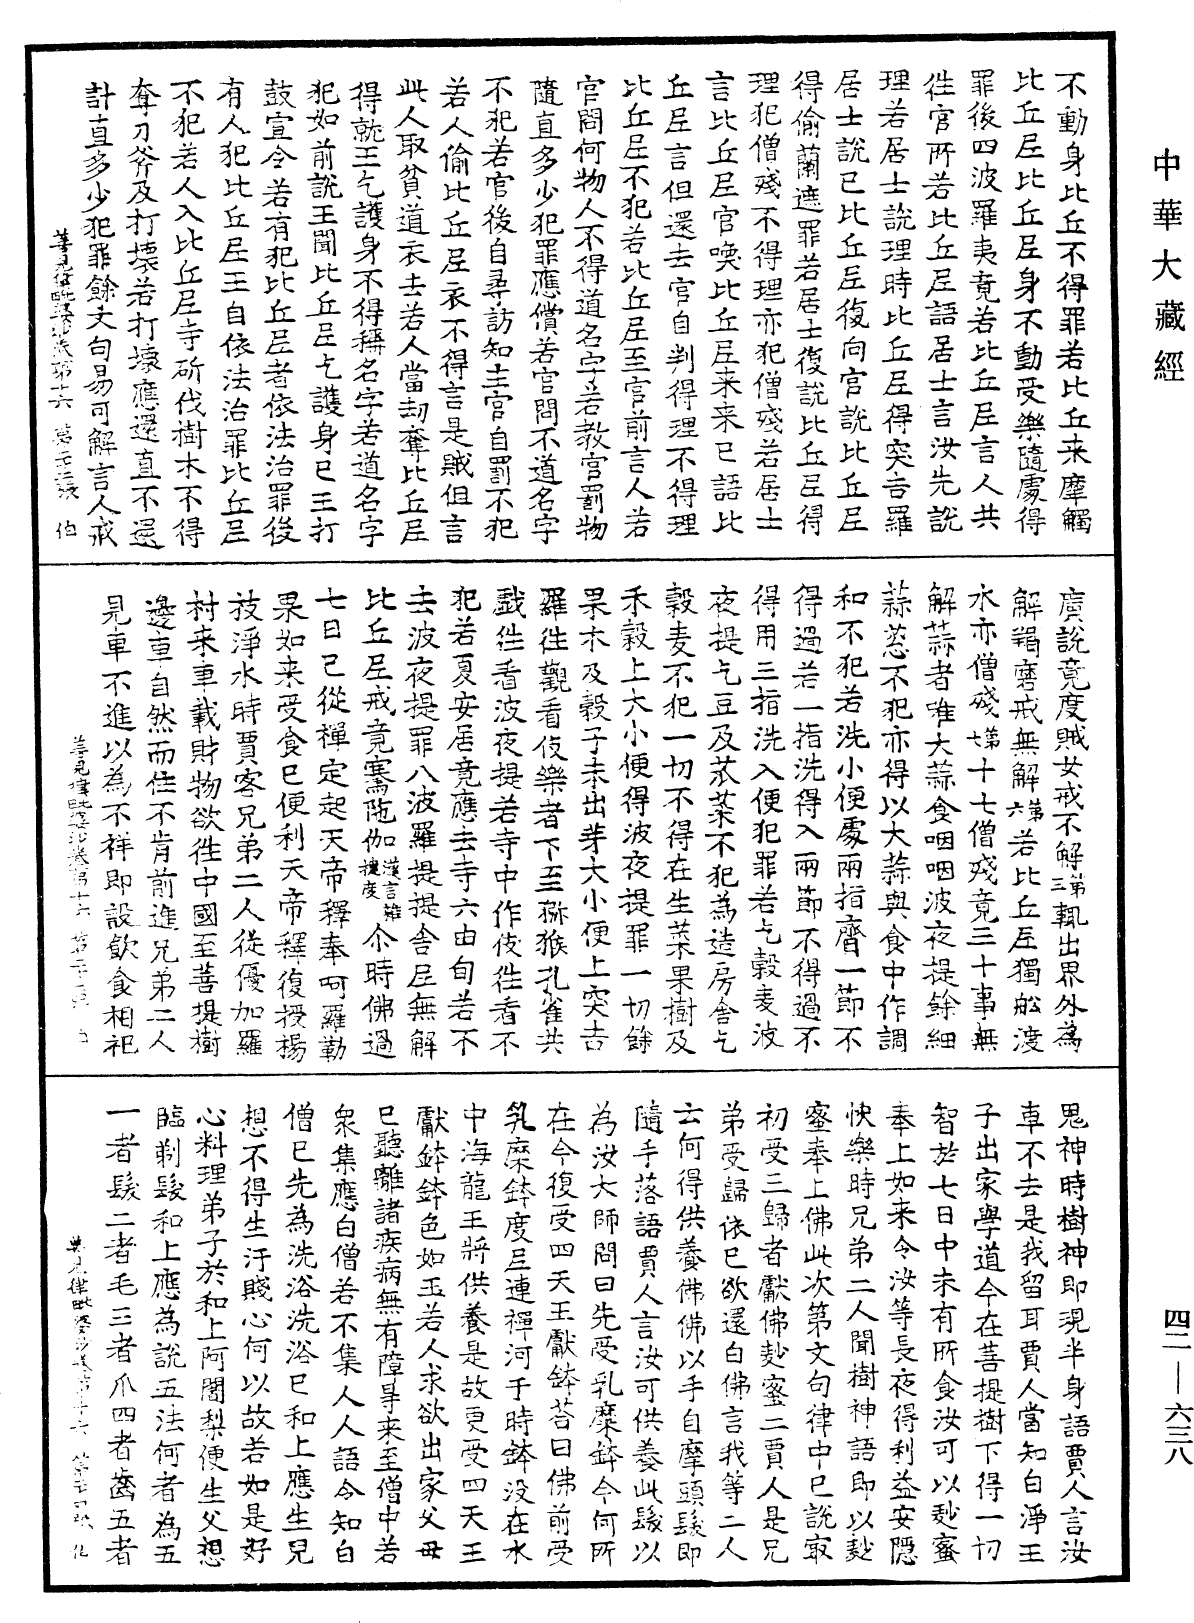 中華大藏經
不動身比丘不得罪若比丘来摩觸
比丘尼比丘尼身不動受樂隨處得
罪後四波羅夷竟若比丘尼言人共
往官所若比丘尼語居士言汝先說
理若居士說理時比丘尼得突吉羅
居士說已比丘尼復向官說比丘尼
得偷蘭遮罪若居士復說比丘尼得
理犯僧殘不得理亦犯僧殘若居士
言比丘尼官喚比丘尼来来已語比
丘尼言但還去官自判得理不得理
比丘尼不犯若比丘尼至官前言人若
官問何物人不得道名字若教官罰物
隨直多少犯罪應償若官問不道名字
不犯若官後自尋訪知主官自罰不犯
若人偷比丘尼衣不得言是賊但言
此人取貧道衣去若人當劫奪比丘尼
得就王乞護身不得稱名字若道名字
犯如前說王聞比丘尼乞護身已王打
鼓宣令若有犯比丘尼者依法治罪後
有人犯比丘尼王自依法治罪比丘尼
不犯若人入比丘尼寺斫伐樹木不得
奪刀斧及打壞若打壞應還直不還
計直多少犯罪餘文句易可解言人戒
善見律毗婆沙卷第十六 第二十二張 伯
廣說竟度賊女戒不解第三輒出界外為
解羯磨戒無解第六若比丘尼獨舩渡
水亦僧殘第七十七僧殘竟三十事無
解蒜者唯大蒜食咽咽波夜提餘細
蒜葱不犯亦得以大蒜與食中作調
和不犯若洗小便處兩指齊一節不
得過若一指洗得入兩節不得過不
得用三指洗入便犯罪若乞穀麦波
夜提乞豆及苽菜不犯為造房舎乞
穀麦不犯一切不得在生菜果樹及
禾穀上大小便得波夜提罪一切餘
果木及穀子未出芽大小便上突吉
羅往觀看伎樂者下至獼猴孔雀共
戲往看波夜提若寺中作伎往看不
犯若夏安居竟應去寺六由旬若不
去波夜提罪八波羅提提舎尼無解
比丘尼戒竟騫陁伽漢言雜揵度尒時佛過
七日已從禪定起天帝釋奉呵羅勒
果如来受食已便利天帝釋復授楊
枝淨水時賈客兄弟二人從優加羅
村来車載財物欲往中國至菩提樹
邊車自然而住不肯前進兄弟二人
見車不進以為不祥即設飲食相祀
善見律毗婆沙卷第十六 第二十三張 伯
鬼神時樹神即現半身語賈人言汝
車不去是我留耳賈人當知白淨王
子出家學道今在菩提樹下得一切
智於七日中未有所食汝可以麨蜜
奉上如来令汝等長夜得利益安隱
快樂時兄弟二人聞樹神語即以麨
蜜奉上佛此次第文句律中已說㝡
初受三歸者獻佛麨蜜二賈人是兄
弟受歸依已欲還白佛言我等二人
云何得供養佛佛以手自摩頭髮即
隨手落語賈人言汝可供養此髮以
為汝大師問曰先受乳糜鉢今何所
在今復受四天王獻鉢荅曰佛前受
乳糜鉢度尼連禪河于時鉢没在水
中海龍王將供養是故更受四天王
獻鉢鉢色如玉若人求欲出家父母
已聽離諸疾病無有障㝵来至僧中若
衆集應白僧若不集人人語令知白
僧已先為洗浴洗浴已和上應生兒
想不得生汙賤心何以故若如是好
心料理弟子於和上阿闍梨便生父想
臨剃髮和上應為說五法何者為五
一者髮二者毛三者爪四者齒五者
善見律毗婆沙卷第十六 第二十四張 伯
四二—六三八